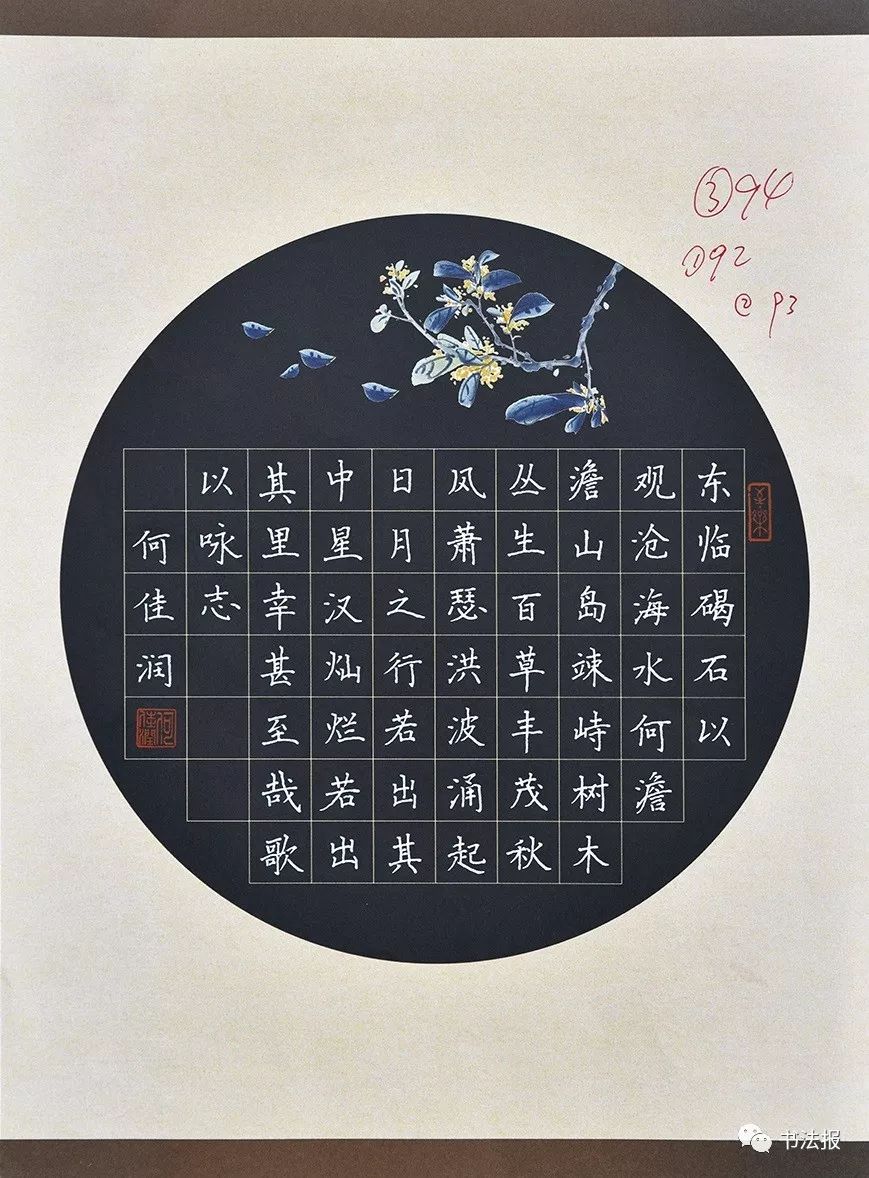 ③94
①92
②93
东临碣石以
观沧海水何澹
澹山岛竦峙树木
丛生百草丰茂秋
风萧瑟洪波涌起
日月之行若出其
中星汉灿烂若出
其里幸甚至哉歌
以咏志
何佳润
书法报